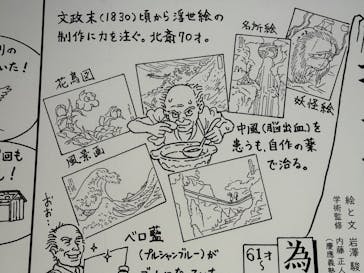 文政末(1830)頃から浮世絵の
制作に力を注ぐ。北斎70才。
名所絵
妖怪絵
花鳥図
風景画
中風(脳出血)を
患うも、自作の薬
で治る。
おお…
ベロ藍
(プルシャンブルー)が
61才
為
絵と文 岩澤 駿
学術監修 内藤正
(慶應義塾
りの
いた!
回も
!